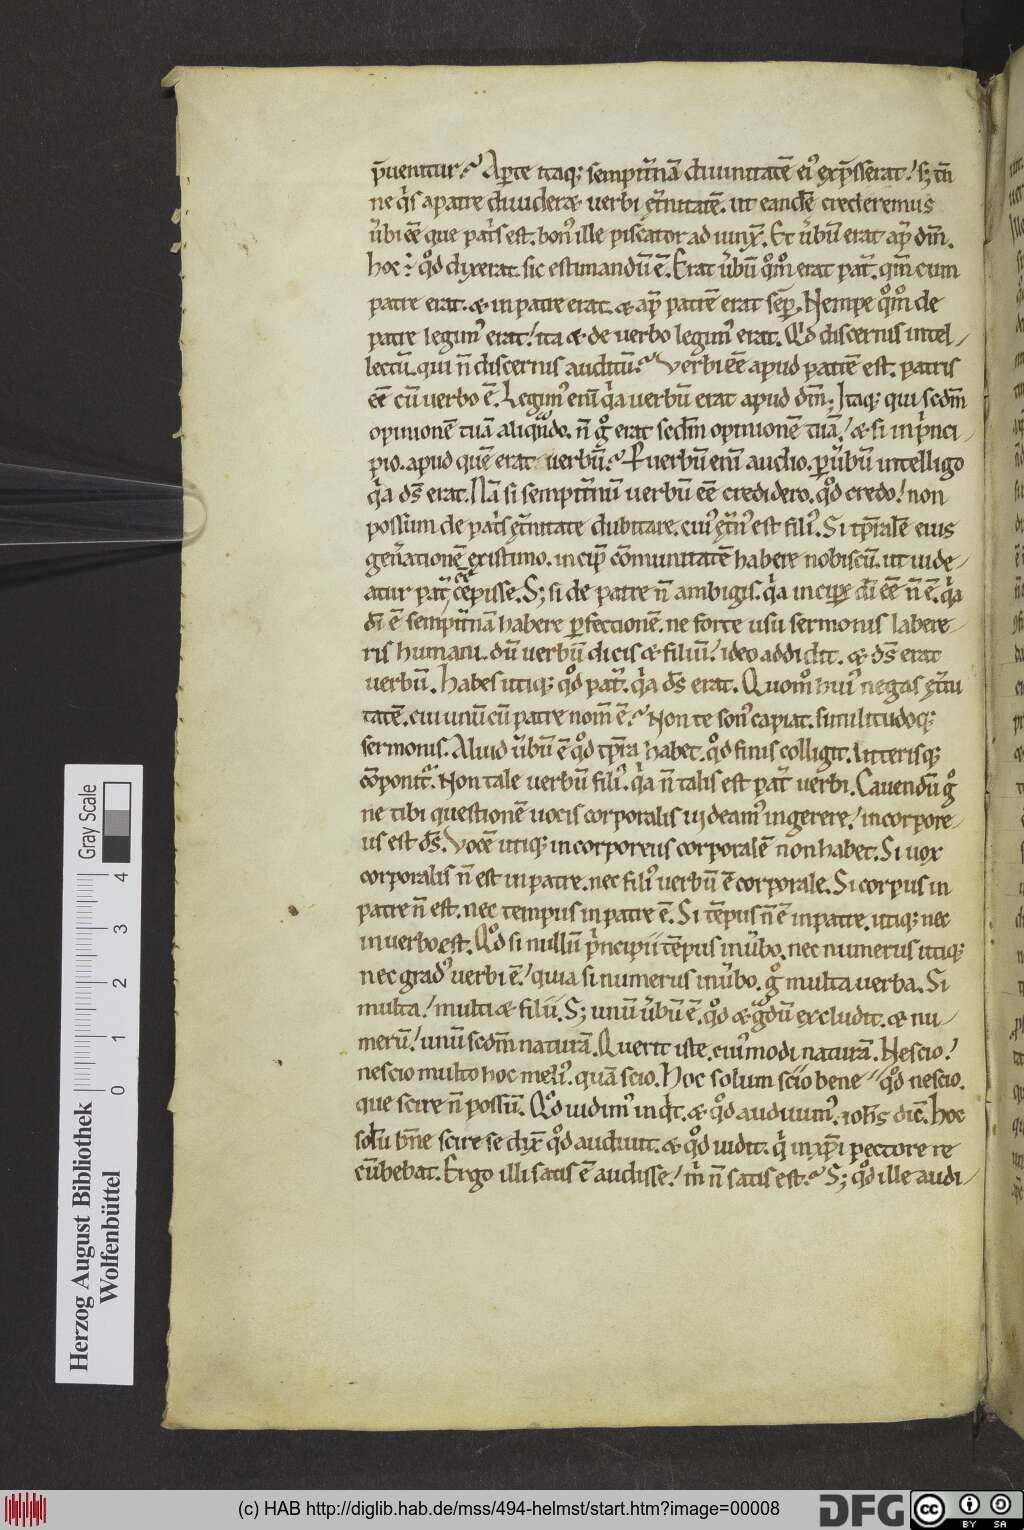 p̄uenitur? Aꝑte itaq; sempit̄nā diuinitatē ei᷒ exp̄sserat! sꝫ tn̄
ne qͥs a patre diuideret uerbi et̄nitatē. ut eandē crederemus
ūbi eē que patͥs est. bon᷒ ille piscator ad iunx̄. Et ūbū erat ap᷒ dm̄.
hoc qͦd dixerat. sic estimandū ē. Erat ūbū qͦmͦ erat pat̄. qm̄ cum
patre erat. & in patre erat. & ap᷒ patrē erat sēꝑ. Nempe qͦmͦ de
patre legim᷒ erat! ita & de uerbo legim᷒ erat. Qͦd discernis intel-
lectū. qui n̄ discernis auditū? Verbi eē apud patrē est. patris
eē cū uerbo ē. Legim᷒ enī qͥa uerbū erat apud dm̄. Itaq; qui scdm̄
opinionē tuā aliqͣndo. n̄ gͦ erat scdm̄ opinionē tuā! & si in pͥnci-
pio. apud quē erat uerbū? Verbū enī audio. ꝑ ūbū intelligo
qͥa ds̄ erat. Nā si sempit̄nū uerbū eē credidero. qͦd credo! non
possum de patͥs et̄nitate dubitare. cui᷒ et̄n᷒ est fili᷒. Si tp̄ralē eius
gen̄ationē existimo. incip̄ cōmunitatē habere nobiscū. ut uide-
atur pat̄ cepisse. Sꝫ si de patre n̄ ambigis. qͥa incipe dī eē n̄ ē. qͥa
dī ē sempit̄nā habere ꝑfectionē. ne forte usu sermonis labere-
ris humani. dū uerbū dicis & filiū! ideo addidit. & ds̄ erat
uerbū. Habes utiq; qͦd pat̄. qͥa ds̄ erat. Quomͦ hui᷒ negas et̄ni
tatē. cui unū cū patre nom̄ ē? Non te son᷒ capiat. similitudoq;
sermonis. Aliud ūbū ē qͦd tp̄ra habet. qͦd sinis colligit. litterisq;
cōponit̄. Non tale uerbū fili᷒. qͥa n̄ talis est pat̄ uerbi. Cauendū gͦ
ne tibi questionē uocis corporalis uideam᷒ ingerere! incorpore-
us est ds̄. Vocē utiq; incorporeus corporalē non habet. Si uox
corporalis n̄ est in patre. nec fili᷒ uerbū ē corporale. Si corpus in
patre n̄ est. nec tempus in patre ē. Si tēpus n̄ ē in patre. utiq; nec
in uerbo est. Qͦd si nullū pͥncipii tēpus in ūbo. nec numerus utiq;
nec grad᷒ uerbi ē! quia si numerus in ūbo. gͦ multa uerba. Si
multa! multi & filii. Sꝫ unū ūbū ē. qͦd & gͣdū excludit. & nu-
merū! unū scdm̄ naturā. Querit iste. cui᷒modi naturā. Nescio!
nescio multo hoc meli᷒. quā scio. Hoc solum scio bene qͦd nescio.
que scire n̄ possū. Qͦd uidim᷒ inqͥt. & qͦd audiuim᷒. ioh̄s dic̄. Hoc
solū bn̄e scire se dix̄ qͦd audiuit. & qͦd uidit. qͥ in xp̄i pectore re
cūbebat. Ergo illi satis ē audisse! mͥ n̄ satis est? Sꝫ qͦd ille audi-
Herzog August Bibliothek
Wolfenbüttel
0 1 2 3 4
Gray Scale
(c) HAB http://diglib.hab.de/mss/494-helmst/start.htm?image=00008
DFG
cc BY SA